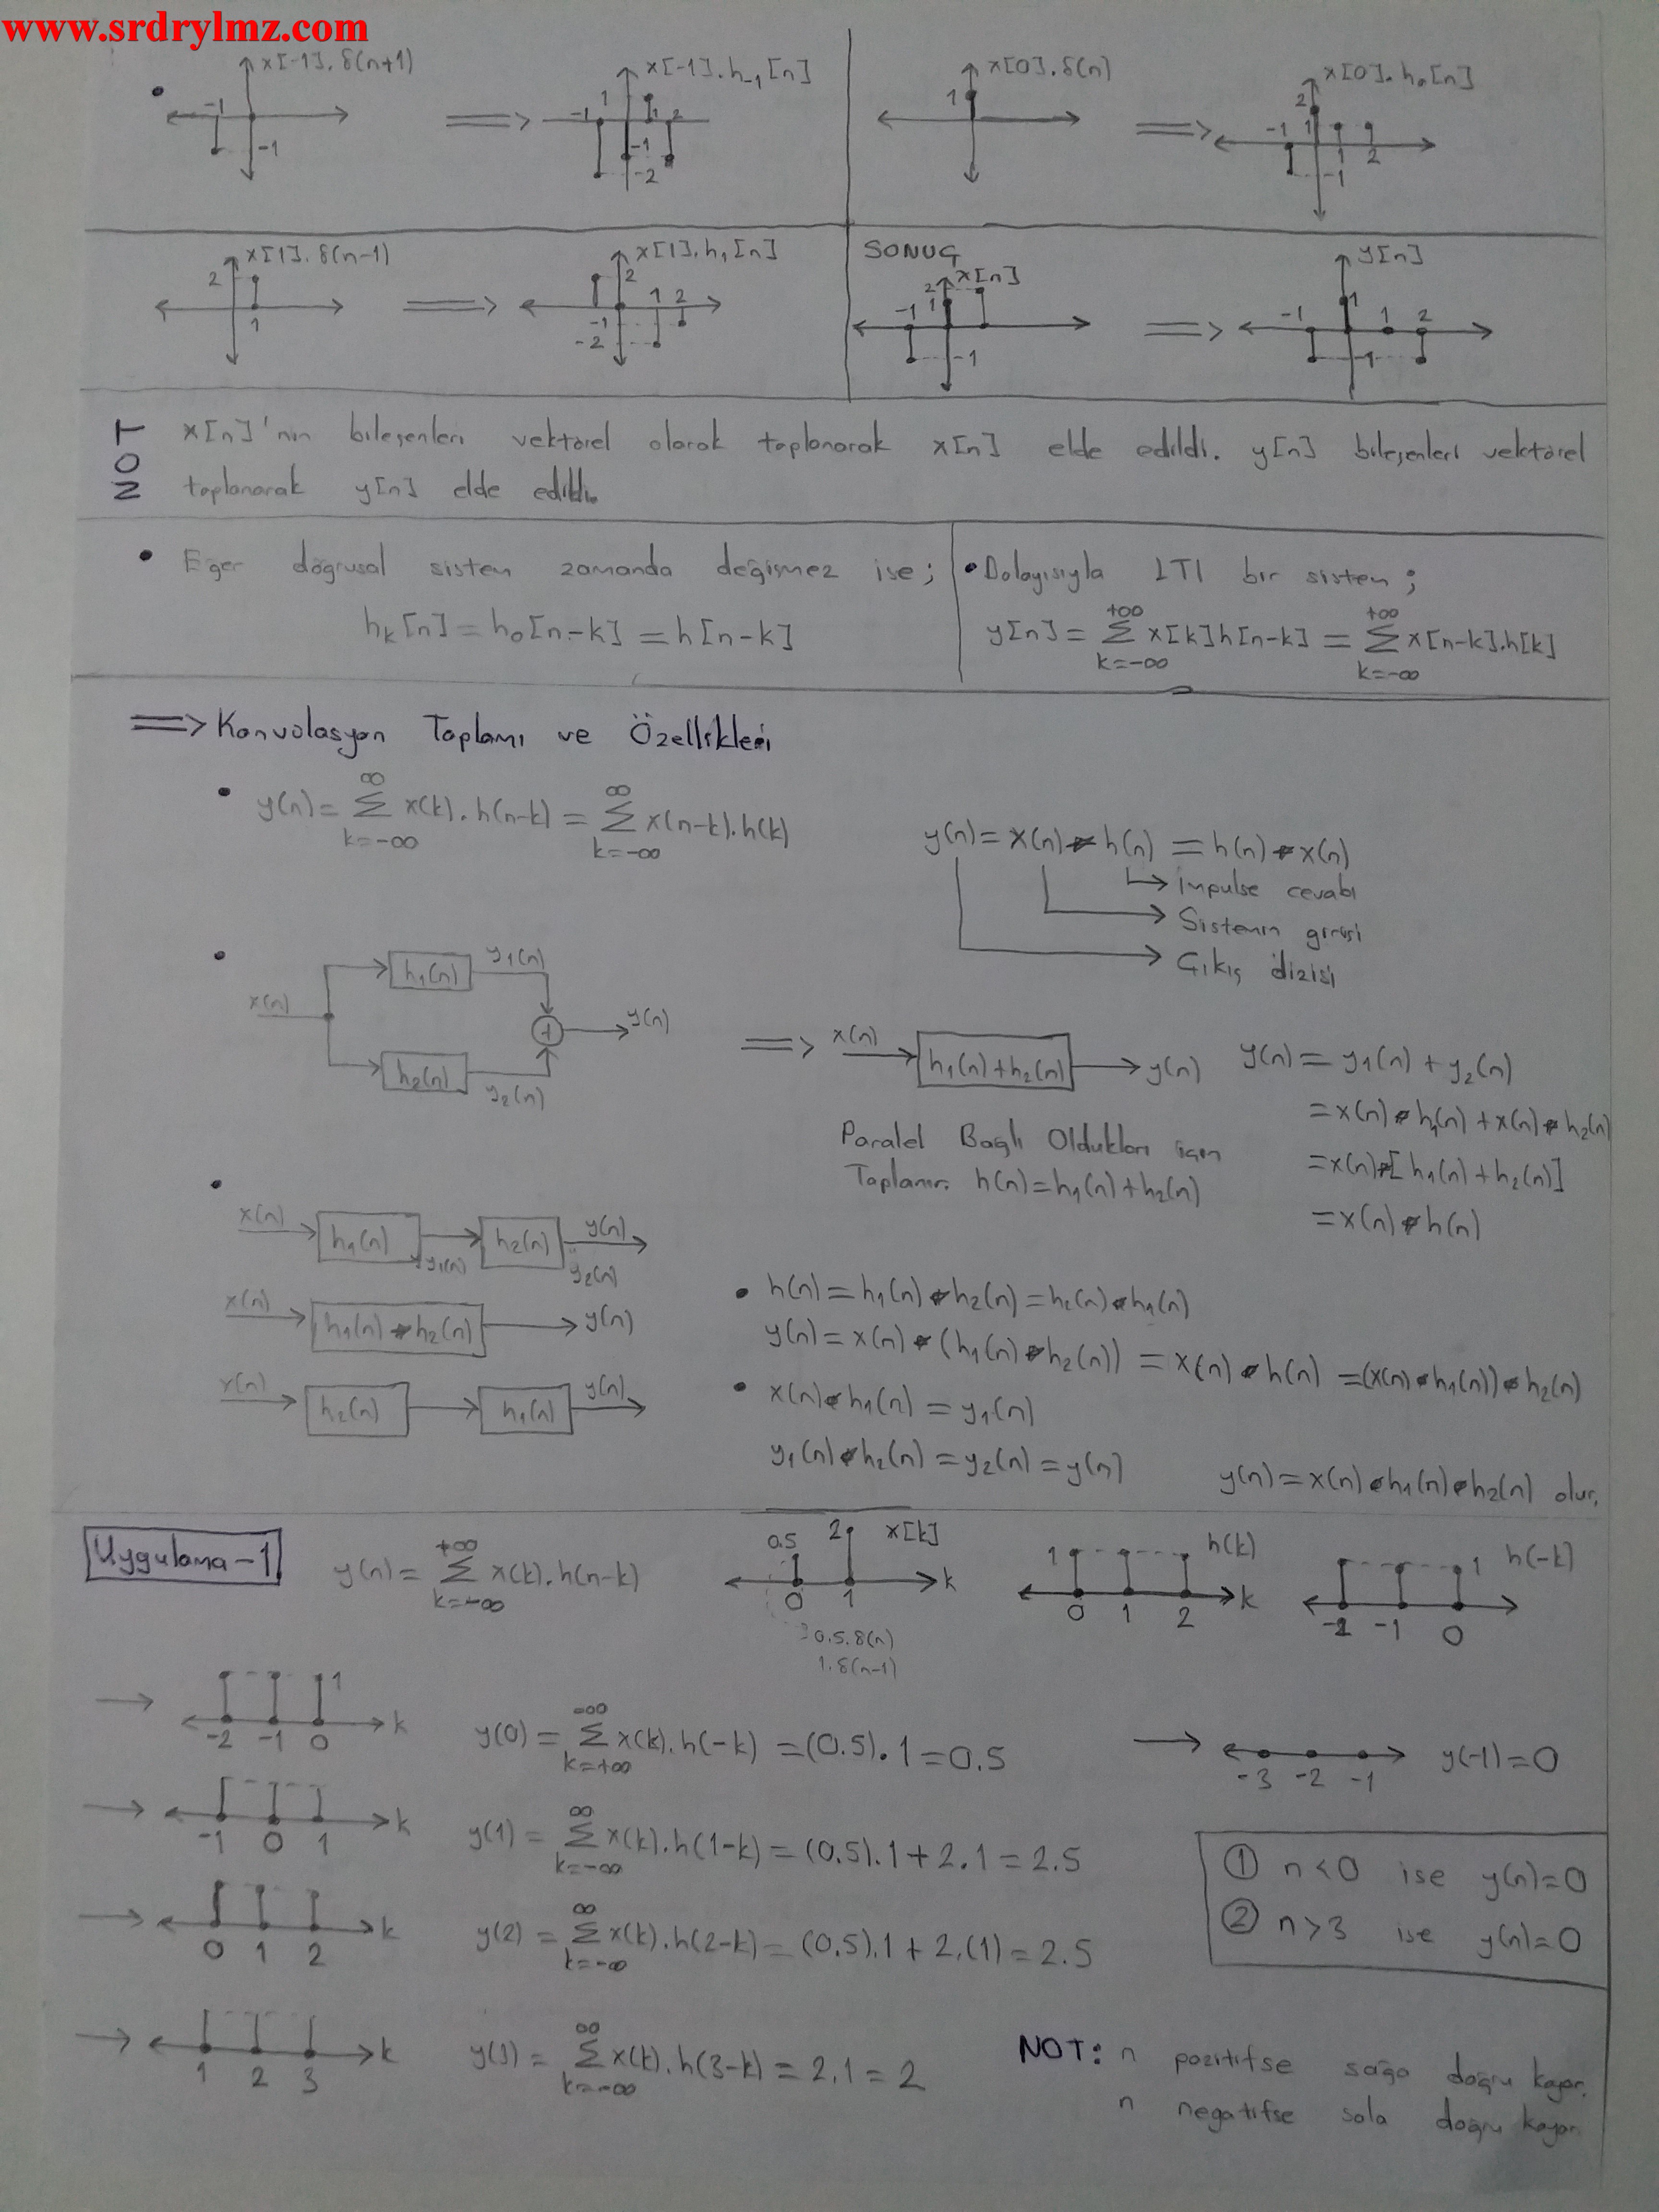 www.srdrylmz.com
x[-1].δ(n+1)
-1
-1
⟹
x[-1].h₋₁[n]
-1 1 1 2
-1
-2
x[0].δ(n)
1
⟹
x[0].h₀[n]
2
-1 1 1 2
-1
x[1].δ(n-1)
2
1
⟹
x[1].h₁[n]
2
1 2
-1
-2
SONUÇ
x[n]
2
-1 1
-1
⟹
y[n]
-1 1 1 2
-1
NOT
x[n]'nin bileşenleri vektörel olarak toplanarak x[n] elde edildi. y[n] bileşenleri vektörel
toplanarak y[n] elde edildi.
• Eğer doğrusal sistem zamanda değişmez ise;
hₖ[n] = h₀[n-k] = h[n-k]
• Dolayısıyla LTI bir sistem;
y[n] = Σ_{k=-∞}^{+∞} x[k]h[n-k] = Σ_{k=-∞}^{+∞} x[n-k].h[k]
⟹ Konvolasyon Toplamı ve Özellikleri
• y(n) = Σ_{k=-∞}^{∞} x(k).h(n-k) = Σ_{k=-∞}^{∞} x(n-k).h(k)
y(n) = x(n) * h(n) = h(n) * x(n)
→ impulse cevabı
→ Sistemin girişi
→ Çıkış dizisi
• x(n) h₁(n) y₁(n)
h₂(n) y₂(n)
+ → y(n)
⟹ x(n) → h₁(n)+h₂(n) → y(n)
Paralel Bağlı Oldukları için
Toplanır. h(n)=h₁(n)+h₂(n)
y(n) = y₁(n) + y₂(n)
= x(n) * h₁(n) + x(n) * h₂(n)
= x(n) * [h₁(n) + h₂(n)]
= x(n) * h(n)
• x(n) → h₁(n) → y₁(n) h₂(n) → y(n)
y₂(n)
x(n) → h₁(n) * h₂(n) → y(n)
x(n) → h₂(n) → h₁(n) → y(n)
• h(n) = h₁(n) * h₂(n) = h₂(n) * h₁(n)
y(n) = x(n) * (h₁(n) * h₂(n)) = x(n) * h(n) = (x(n) * h₁(n)) * h₂(n)
• x(n) * h₁(n) = y₁(n)
y₁(n) * h₂(n) = y₂(n) = y(n)
y(n) = x(n) * h₁(n) * h₂(n) olur.
Uygulama-1
y(n) = Σ_{k=-∞}^{+∞} x(k).h(n-k)
0.5 2 x[k]
0 1 k
0.5.δ(n)
1.δ(n-1)
1 h(k)
0 1 2 k
1 h(-k)
-2 -1 0
→ 1
-2 -1 0 k
y(0) = Σ_{k=+∞}^{-∞} x(k).h(-k) = (0.5).1 = 0.5
→ -3 -2 -1 y(-1)=0
→ -1 0 1 k
y(1) = Σ_{k=-∞}^{∞} x(k).h(1-k) = (0.5).1 + 2.1 = 2.5
① n<0 ise y(n)=0
② n>3 ise y(n)=0
→ 0 1 2 k
y(2) = Σ_{k=-∞}^{∞} x(k).h(2-k) = (0.5).1 + 2.(1) = 2.5
→ 1 2 3 k
y(3) = Σ_{k=-∞}^{∞} x(k).h(3-k) = 2.1 = 2
NOT: n pozitifse sağa doğru kayar.
n negatifse sola doğru kayar.